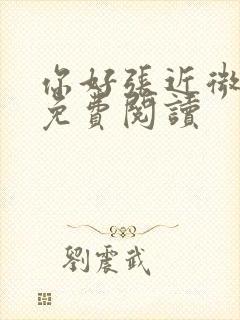 你好張近微
免費閱讀
劉震武